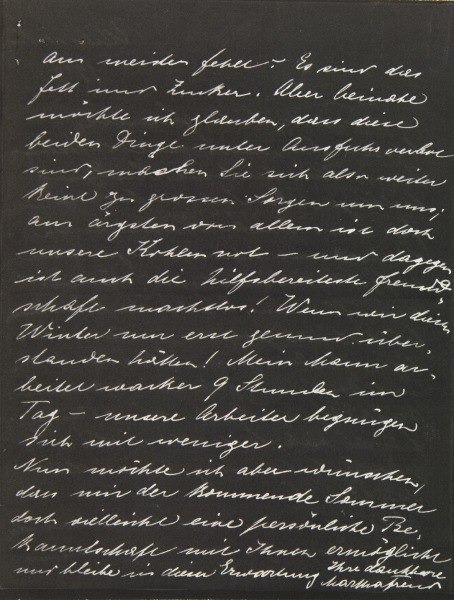 am meisten fehlt – Es sind das
Fett und Zucker. Aber beinahe
möchte ich glauben, dass diese
beiden Dinge unter Ausfuhrverbot
sind, machen Sie sich also weiter
keine zu grossen Sorgen um uns,
am ärgsten von allem ist doch
unsere Kohlennot – und dagegen
ist auch die hilfsbereiteste Freund-
schaft machtlos! Wenn wir diesen
Winter nur erst gesund über-
standen hätten! Mein Mann ar-
beitet wacker 9 Stunden im
Tag – unsere Arbeiter begnügen
sich mit weniger.
Nun möchte ich aber wünschen,
dass mir der kommende Sommer
doch vielleicht eine persönliche Be-
kanntschaft mit Ihnen ermögliche
und bleibe in dieser Erwartung Ihre dankbare
Martha Freud